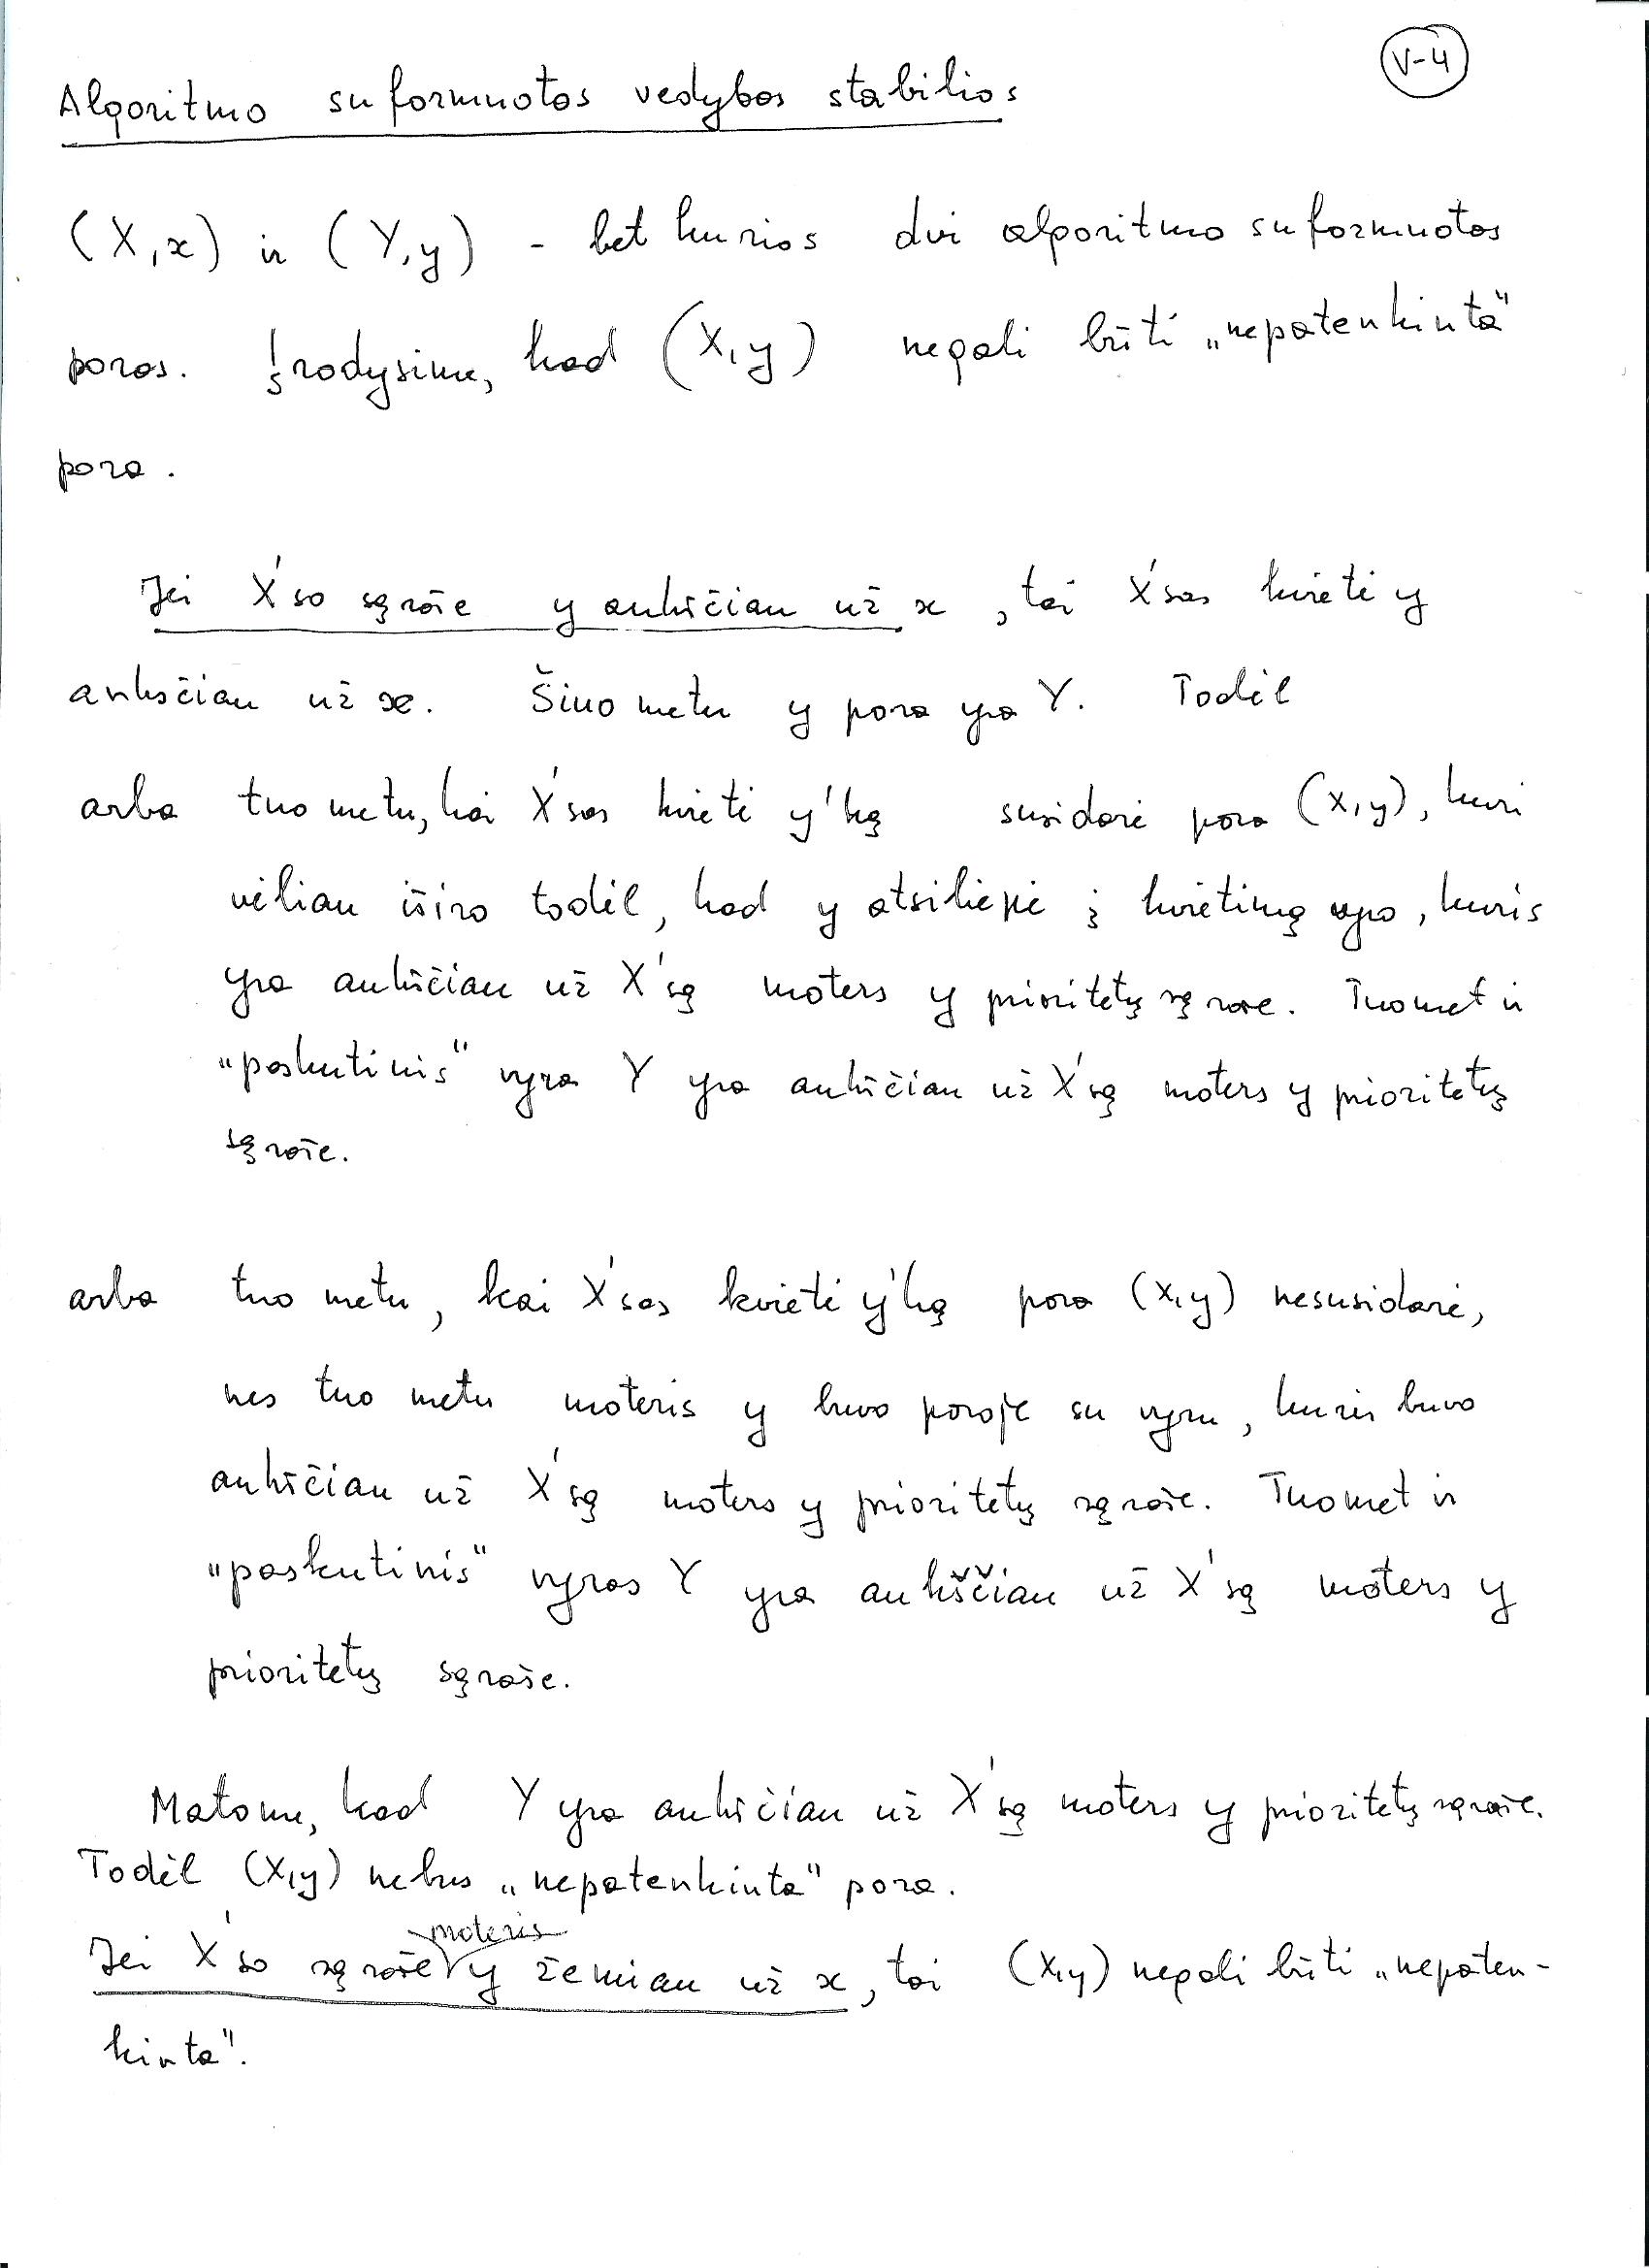 V-4
Algoritmo suformuotos vedybos stabilios
(X,x) ir (Y,y) - bet kurios dvi algoritmo suformuotos
poros. Įrodysime, kad (X,y) negali būti „nepatenkinta"
pora.
Jei X'so sąraše y aukščiau už x, tai X'sas kvietė y
anksčiau už x. Šiuo metu y pora yra Y. Todėl
arba tuo metu, kai X'sas kvietė y'ką susidarė pora (X,y), kuri
vėliau iširo todėl, kad y atsiliepė į kvietimą vyro, kuris
yra aukščiau už X'są moters y prioritetų sąraše. Tuomet ir
"paskutinis" vyras Y yra aukščiau už X'są moters y prioritetų
sąraše.
arba tuo metu, kai X'sas kvietė y'ką pora (X,y) nesusidarė,
nes tuo metu moteris y buvo poroje su vyru, kuris buvo
aukščiau už X'są moters y prioritetų sąraše. Tuomet ir
"paskutinis" vyras Y yra aukščiau už X'są moters y
prioritetų sąraše.
Matome, kad Y yra aukščiau už X'są moters y prioritetų sąraše.
Todėl (X,y) nebus „nepatenkinta" pora.
moteris
Jei X'so sąraše y žemiau už x, tai (X,y) negali būti „nepaten-
kinta".